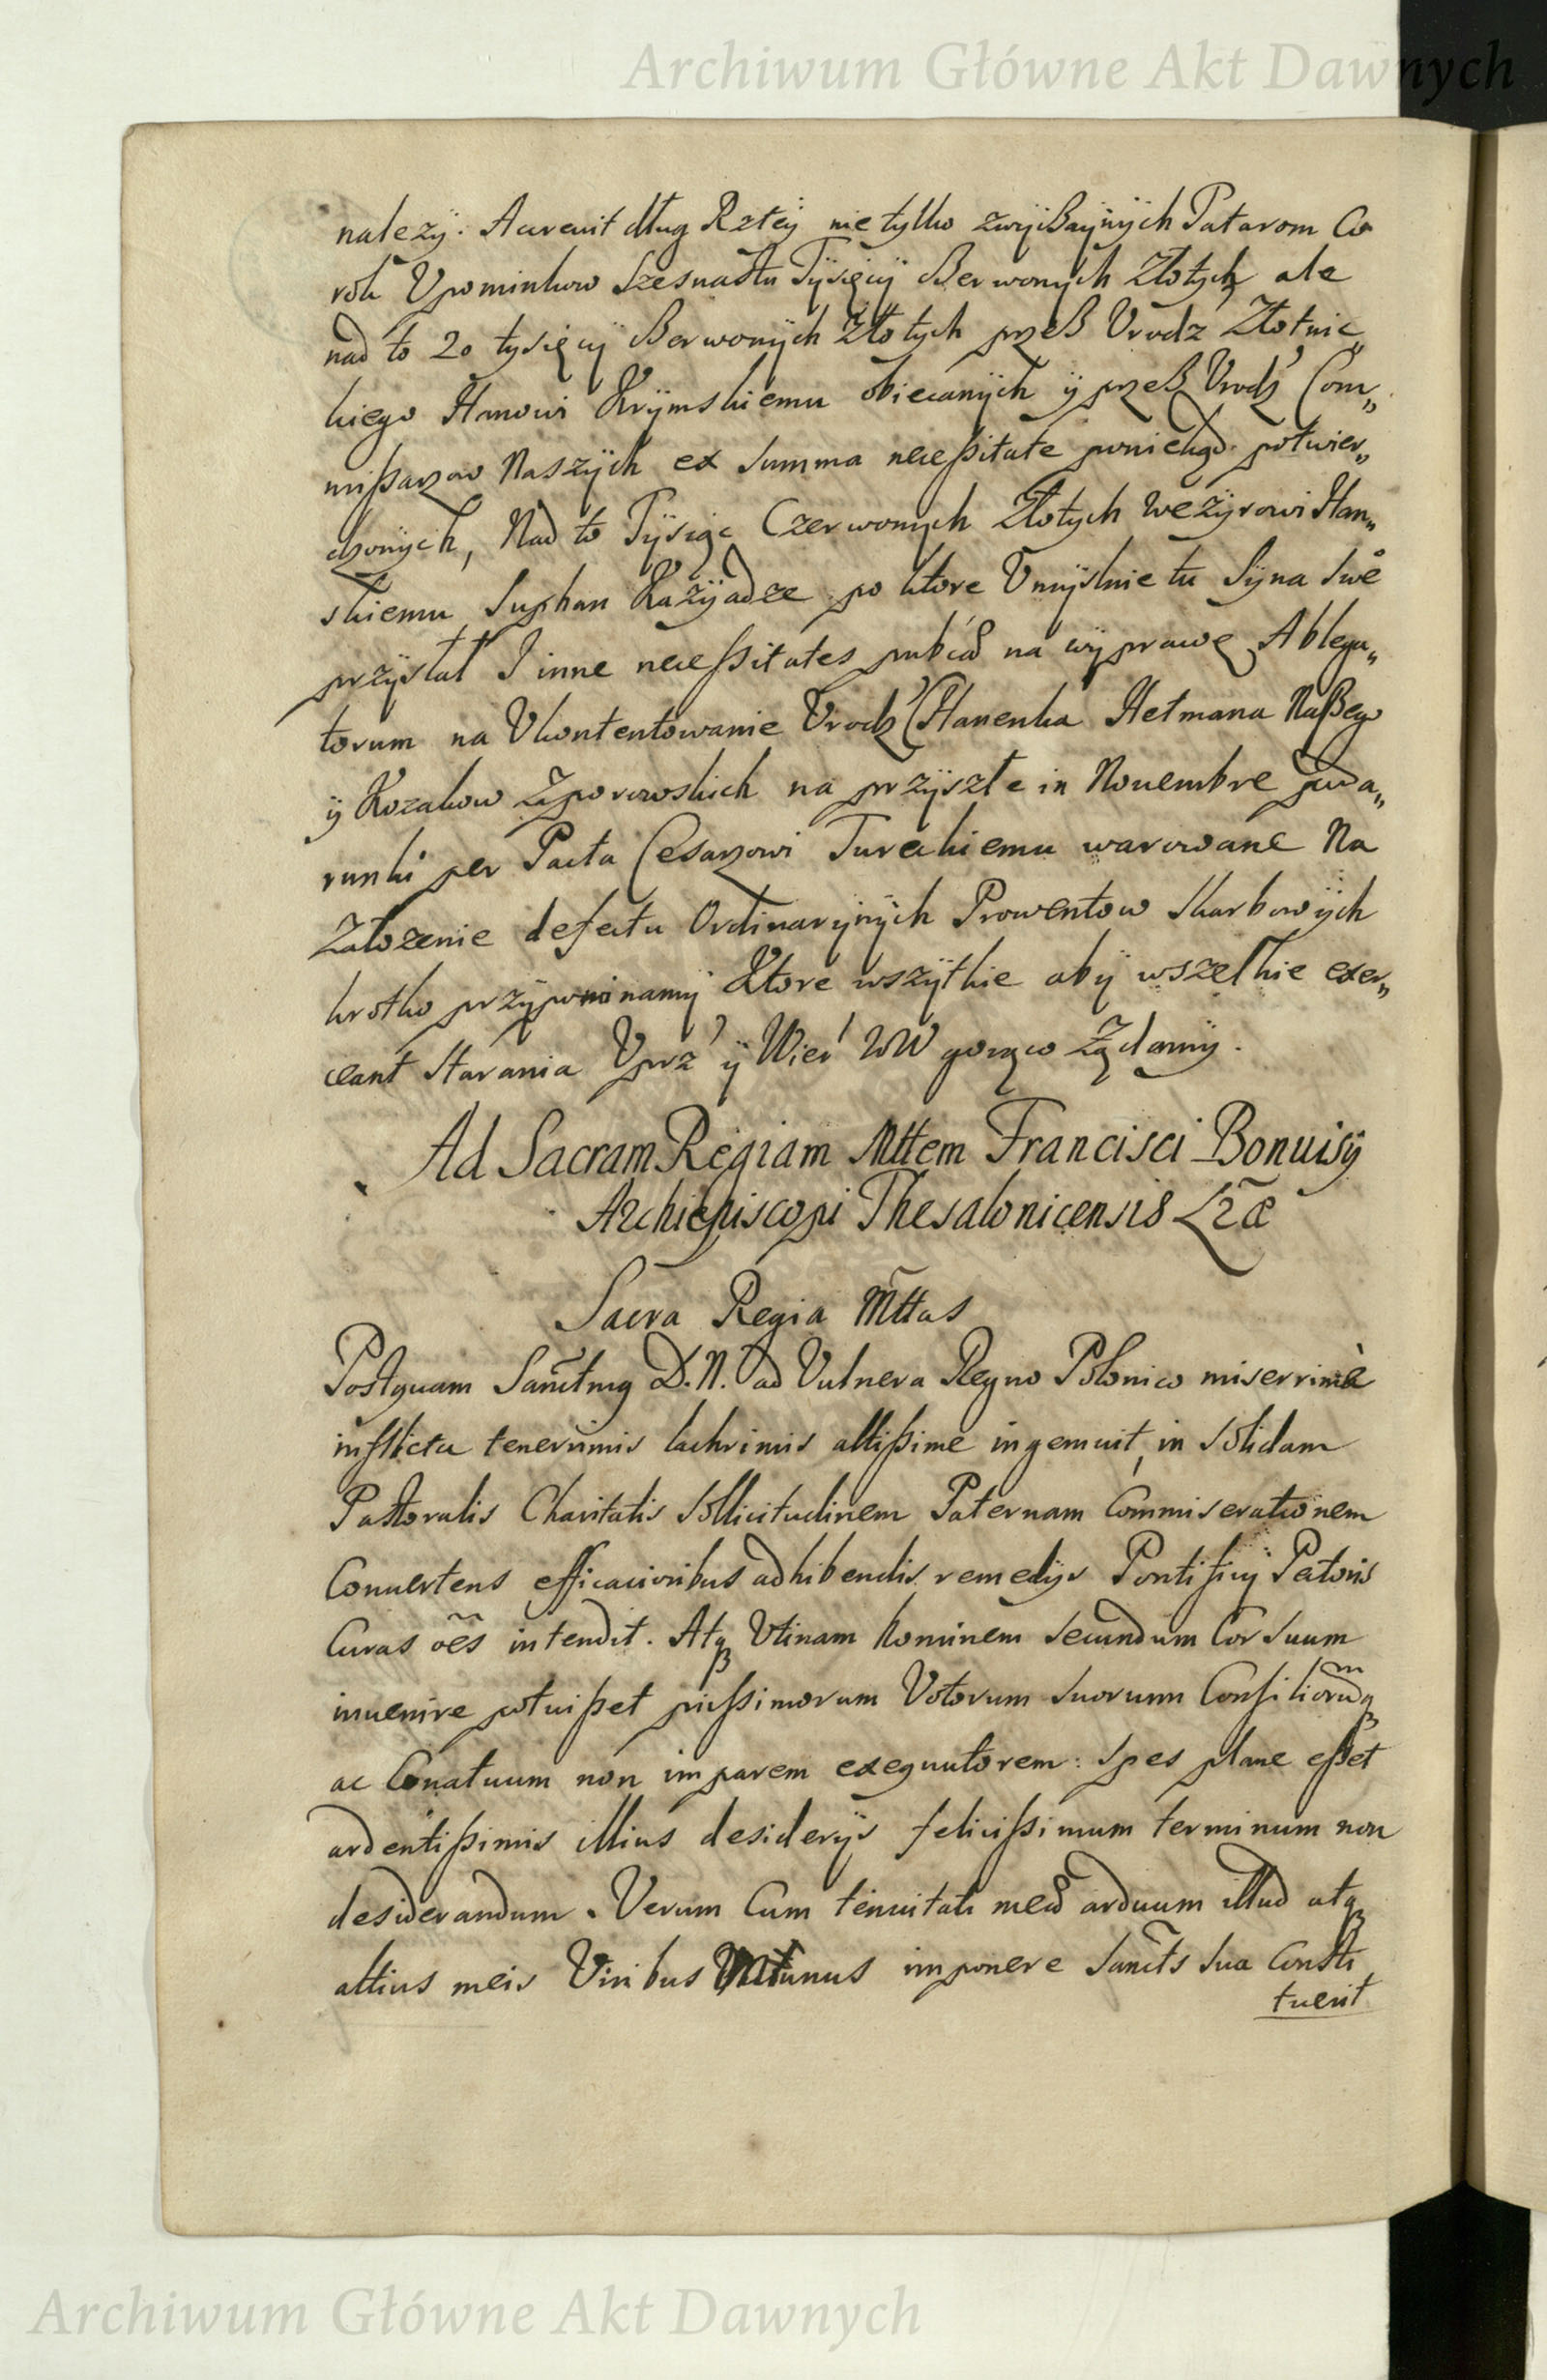 Archiwum Główne Akt Dawnych
należÿ. Accrevit dług Rzltej nie tylko zwÿßaÿnÿch Tatarom Co
rok Upominkow szesnastu Tÿsięcÿ Cżerwonÿch Złotÿch ale
nad to 20 tysięcÿ Cżerwonÿch Złotÿch przeß Urodz Złotnic„
kiego Hanowi Krÿmskiemu obiecanÿch ÿ przeß Urodz Com„
mißarzow Naszÿch ex summa neceßitate poniekąd potwier„
dzonÿch, Nad to Tÿsiąc Czerwonych Złotych Wezÿrowi Han„
skiemu Suphan Kazÿadze po które Umÿslnie tu Sÿna swe
przÿsłał I inne neceßitates publicas na wÿprawę Ablega„
torum na Ukontentowanie Urodz Hanenka Hetmana Naßego
ÿ Kozakow Zaporowskich na przÿszłe in Nouembre poda„
runki per Pacta Cesarzowi Tureckiemu warowane Na
Załozenie defectu Ordinarÿnÿch Prowentow Skarbowÿch
krotko przÿpominamÿ Ktore wszÿtkie abÿ wszelkie exer„
ceant starania Uprz ÿ Wier WW gorąco Żądamÿ.
Ad Sacram Regiam Mttem Francisci Bonuisÿ
Archiepiscopi Thesalonicensis Lræ
Sacra Regia Mttas
Postquam Sanctmg D.N. ad Vulnera Regno Polonico miserrimè
inflicta tenerrimis lachrimis altißime ingemuit, in solidam
Pastoralis Charitatis sollicitudinem Paternam Commiserationem
Conuertens efficacioribus adhibendis remedÿs Pontificÿ Pectoris
Curas oẽs intendit. Atq Utinam hominem secundum Cor suum
inuenire potuißet pijssimorum Votorum suorum Consiliorumq
ac Conatuum non imparem exequutorem: spes plane eßet
ardentißimis illius desiderÿs felicißimum terminum non
desiderandum. Verum Cum tenuitati meæ arduum illud atq
altius meis Viribus Munus imponere Sancts Sua Consti
tuerit
Archiwum Główne Akt Dawnych